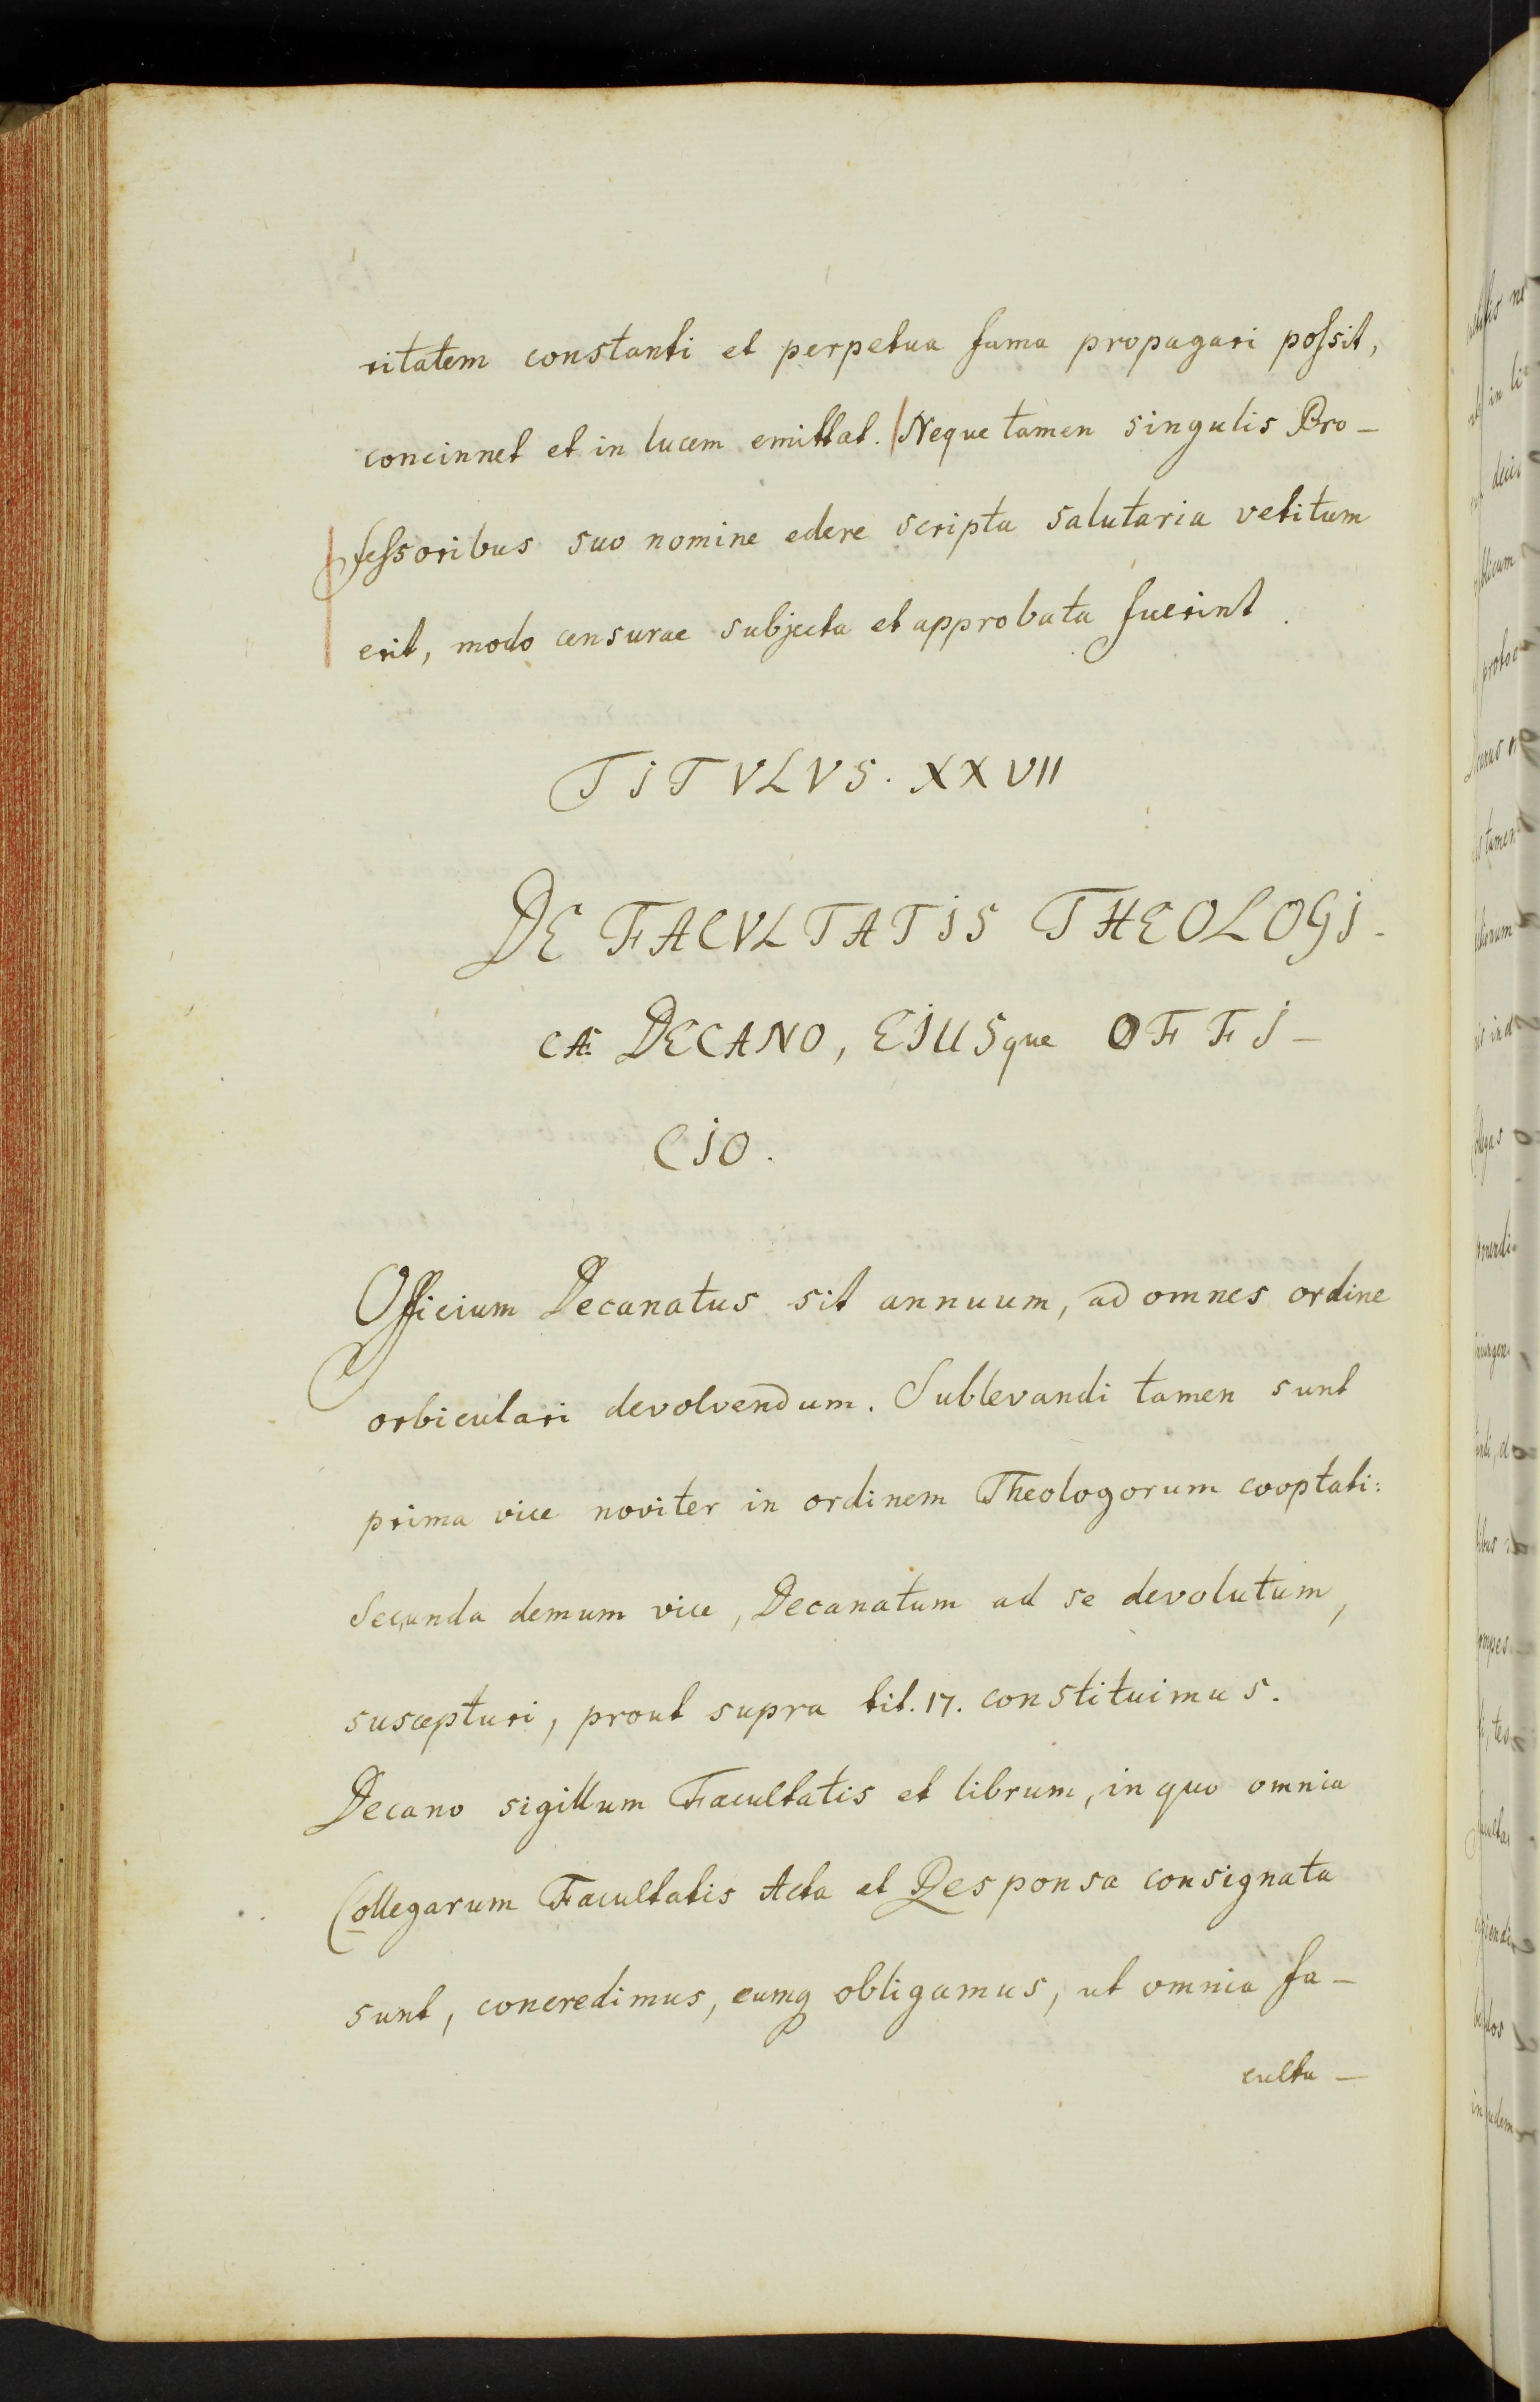 ritatem constanti et perpetua fama propagari poſsit,
concinnet et in lucem emittat. Neque tamen singulis Pro-
feſsoribus suo nomine edere scripta salutaria vetitum
erit, modo censurae subjecta et approbata fuerint.
TITVLVS. XXVII
DE FACVLTATIS THEOLOGI-
CÆ DECANO, EJUSque OFFI-
CIO.
Officium Decanatus sit annuum, ad omnes ordine
orbiculari devolvendum. Sublevandi tamen sunt
prima vice noviter in ordinem Theologorum cooptati:
Secunda demum vice, Decanatum ad se devolutum,
suscepturi, prout supra tit. 17. constituimus.
Decano sigillum Facultatis et librum, in quo omnia
Collegarum Facultatis Acta et Responsa consignata
sunt, concredimus, eumq obligamus, ut omnia fa-
culta-